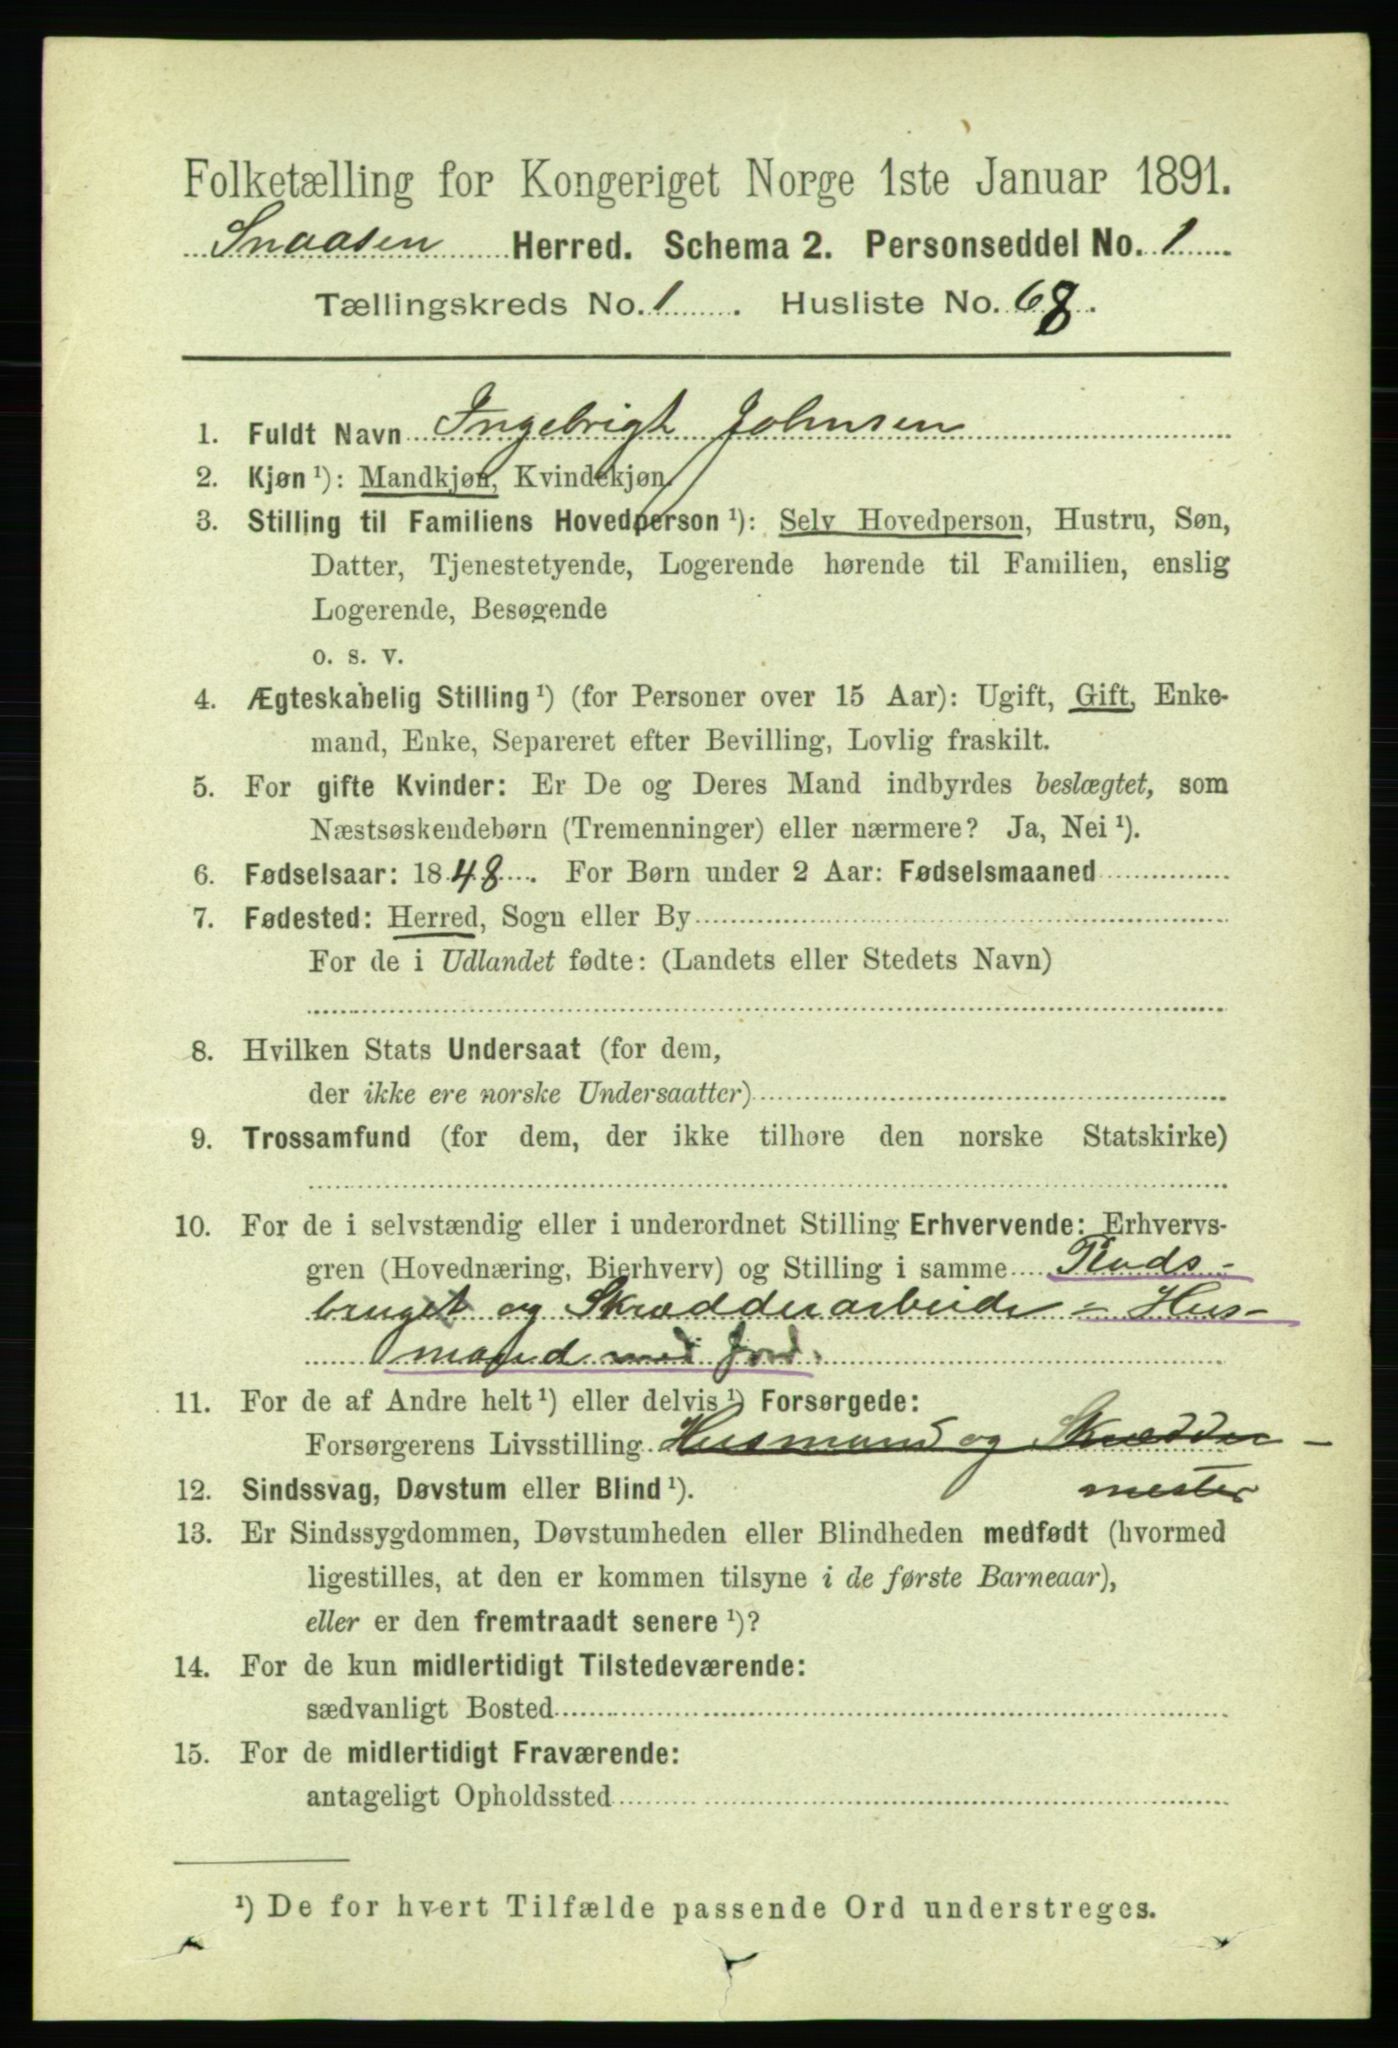 Folketælling for Kongeriget Norge 1ste Januar 1891.
Snaasen Herred. Schema 2. Personseddel No. 1
Tællingskreds No. 1. Husliste No. 68.
1. Fuldt Navn Ingebrigt Johnsen
2. Kjøn ¹): Mandkjøn, Kvindekjøn.
3. Stilling til Familiens Hovedperson ¹): Selv Hovedperson, Hustru, Søn,
Datter, Tjenestetyende, Logerende hørende til Familien, enslig
Logerende, Besøgende
o. s. v.
4. Ægteskabelig Stilling ¹) (for Personer over 15 Aar): Ugift, Gift, Enke-
mand, Enke, Separeret efter Bevilling, Lovlig fraskilt.
5. For gifte Kvinder: Er De og Deres Mand indbyrdes beslægtet, som
Næstsøskendebørn (Tremenninger) eller nærmere? Ja, Nei ¹).
6. Fødselsaar: 1848. For Børn under 2 Aar: Fødselsmaaned
7. Fødested: Herred, Sogn eller By
For de i Udlandet fødte: (Landets eller Stedets Navn)
8. Hvilken Stats Undersaat (for dem,
der ikke ere norske Undersaatter)
9. Trossamfund (for dem, der ikke tilhøre den norske Statskirke)
10. For de i selvstændig eller i underordnet Stilling Erhvervende: Erhvervs-
gren (Hovednæring, Bierhverv) og Stilling i samme Plads-
bruget og Skrædderarbeide = Hus-
mand med Jord.
11. For de af Andre helt ¹) eller delvis ¹) Forsørgede:
Forsørgerens Livsstilling Husmand og Skrædder-
12. Sindssvag, Døvstum eller Blind ¹). mester
13. Er Sindssygdommen, Døvstumheden eller Blindheden medfødt (hvormed
ligestilles, at den er kommen tilsyne i de første Barneaar),
eller er den fremtraadt senere ¹)?
14. For de kun midlertidigt Tilstedeværende:
sædvanligt Bosted
15. For de midlertidigt Fraværende:
antageligt Opholdssted
¹) De for hvert Tilfælde passende Ord understreges.